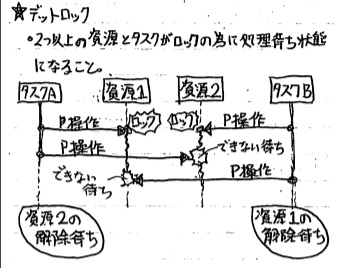 ☆デットロック
○2つ以上の資源とタスクがロックの為に処理待ち状態
になること。
タスクA 資源1 資源2 タスクB
P操作 ロック ロック P操作
P操作 できない
待ち
できない P操作
待ち
資源2の 資源1の
解除待ち 解除待ち